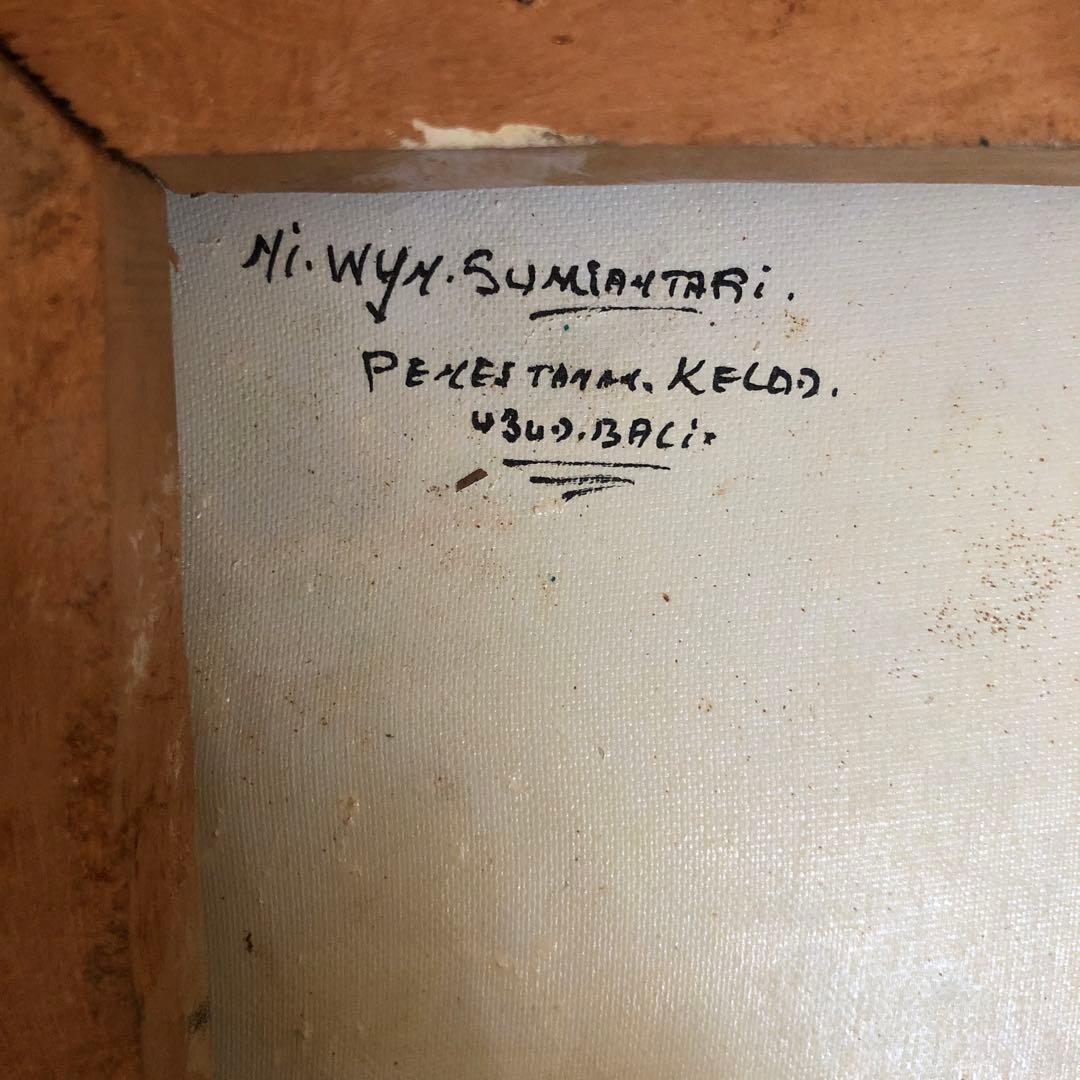 Ni. WYN. SUMIANTARi.
PENESTANAN. KELOD.
UBUD. BALi.